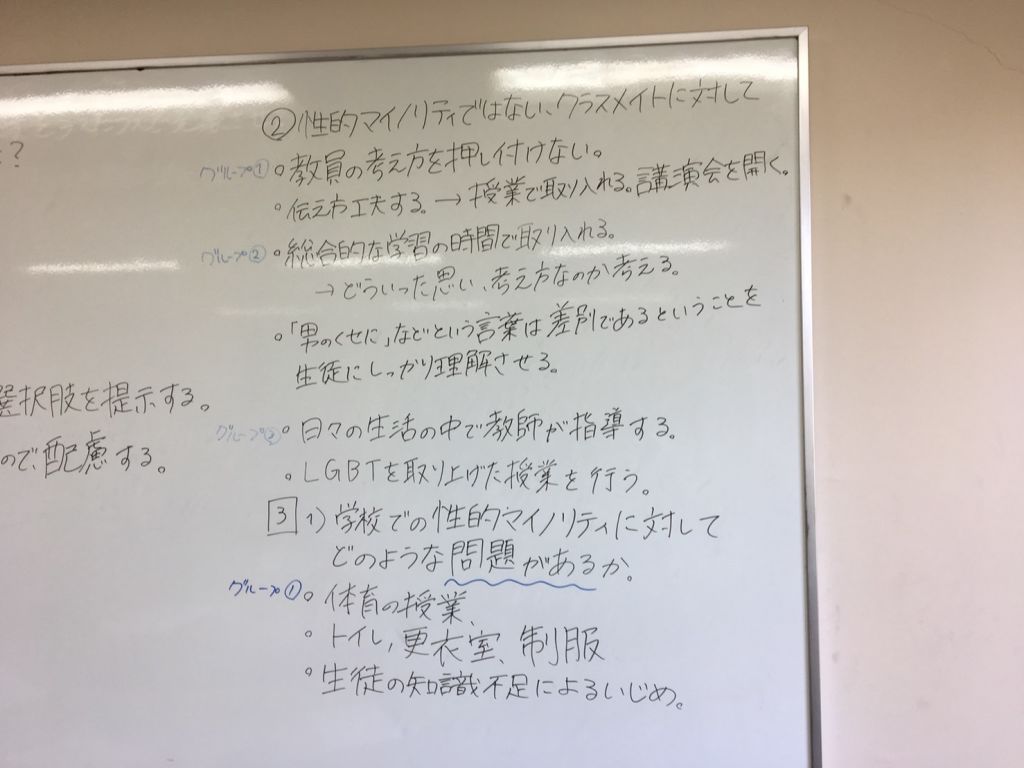 ②性的マイノリティではない、クラスメイトに対して
グループ① ○教員の考え方を押し付けない。
○伝え方工夫する。→授業で取り入れる。講演会を開く。
グループ② ○総合的な学習の時間で取り入れる。
→どういった思い、考え方なのか考える。
○「男のくせに」などという言葉は差別であるということを
生徒にしっかり理解させる。
グループ③ ○日々の生活の中で教師が指導する。
○LGBTを取り上げた授業を行う。
3 1)学校での性的マイノリティに対して
どのような問題があるか。
グループ① ○体育の授業、
○トイレ,更衣室、制服
○生徒の知識不足によるいじめ。
?
選択肢を提示する。
ので、配慮する。